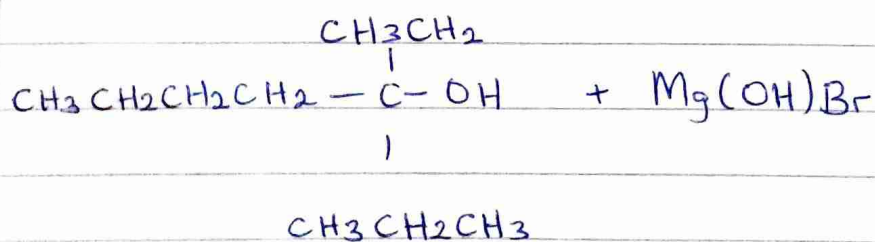 CH3CH2
|
CH3 CH2CH2CH2 — C - OH + Mg(OH)Br
|
CH3 CH2CH3